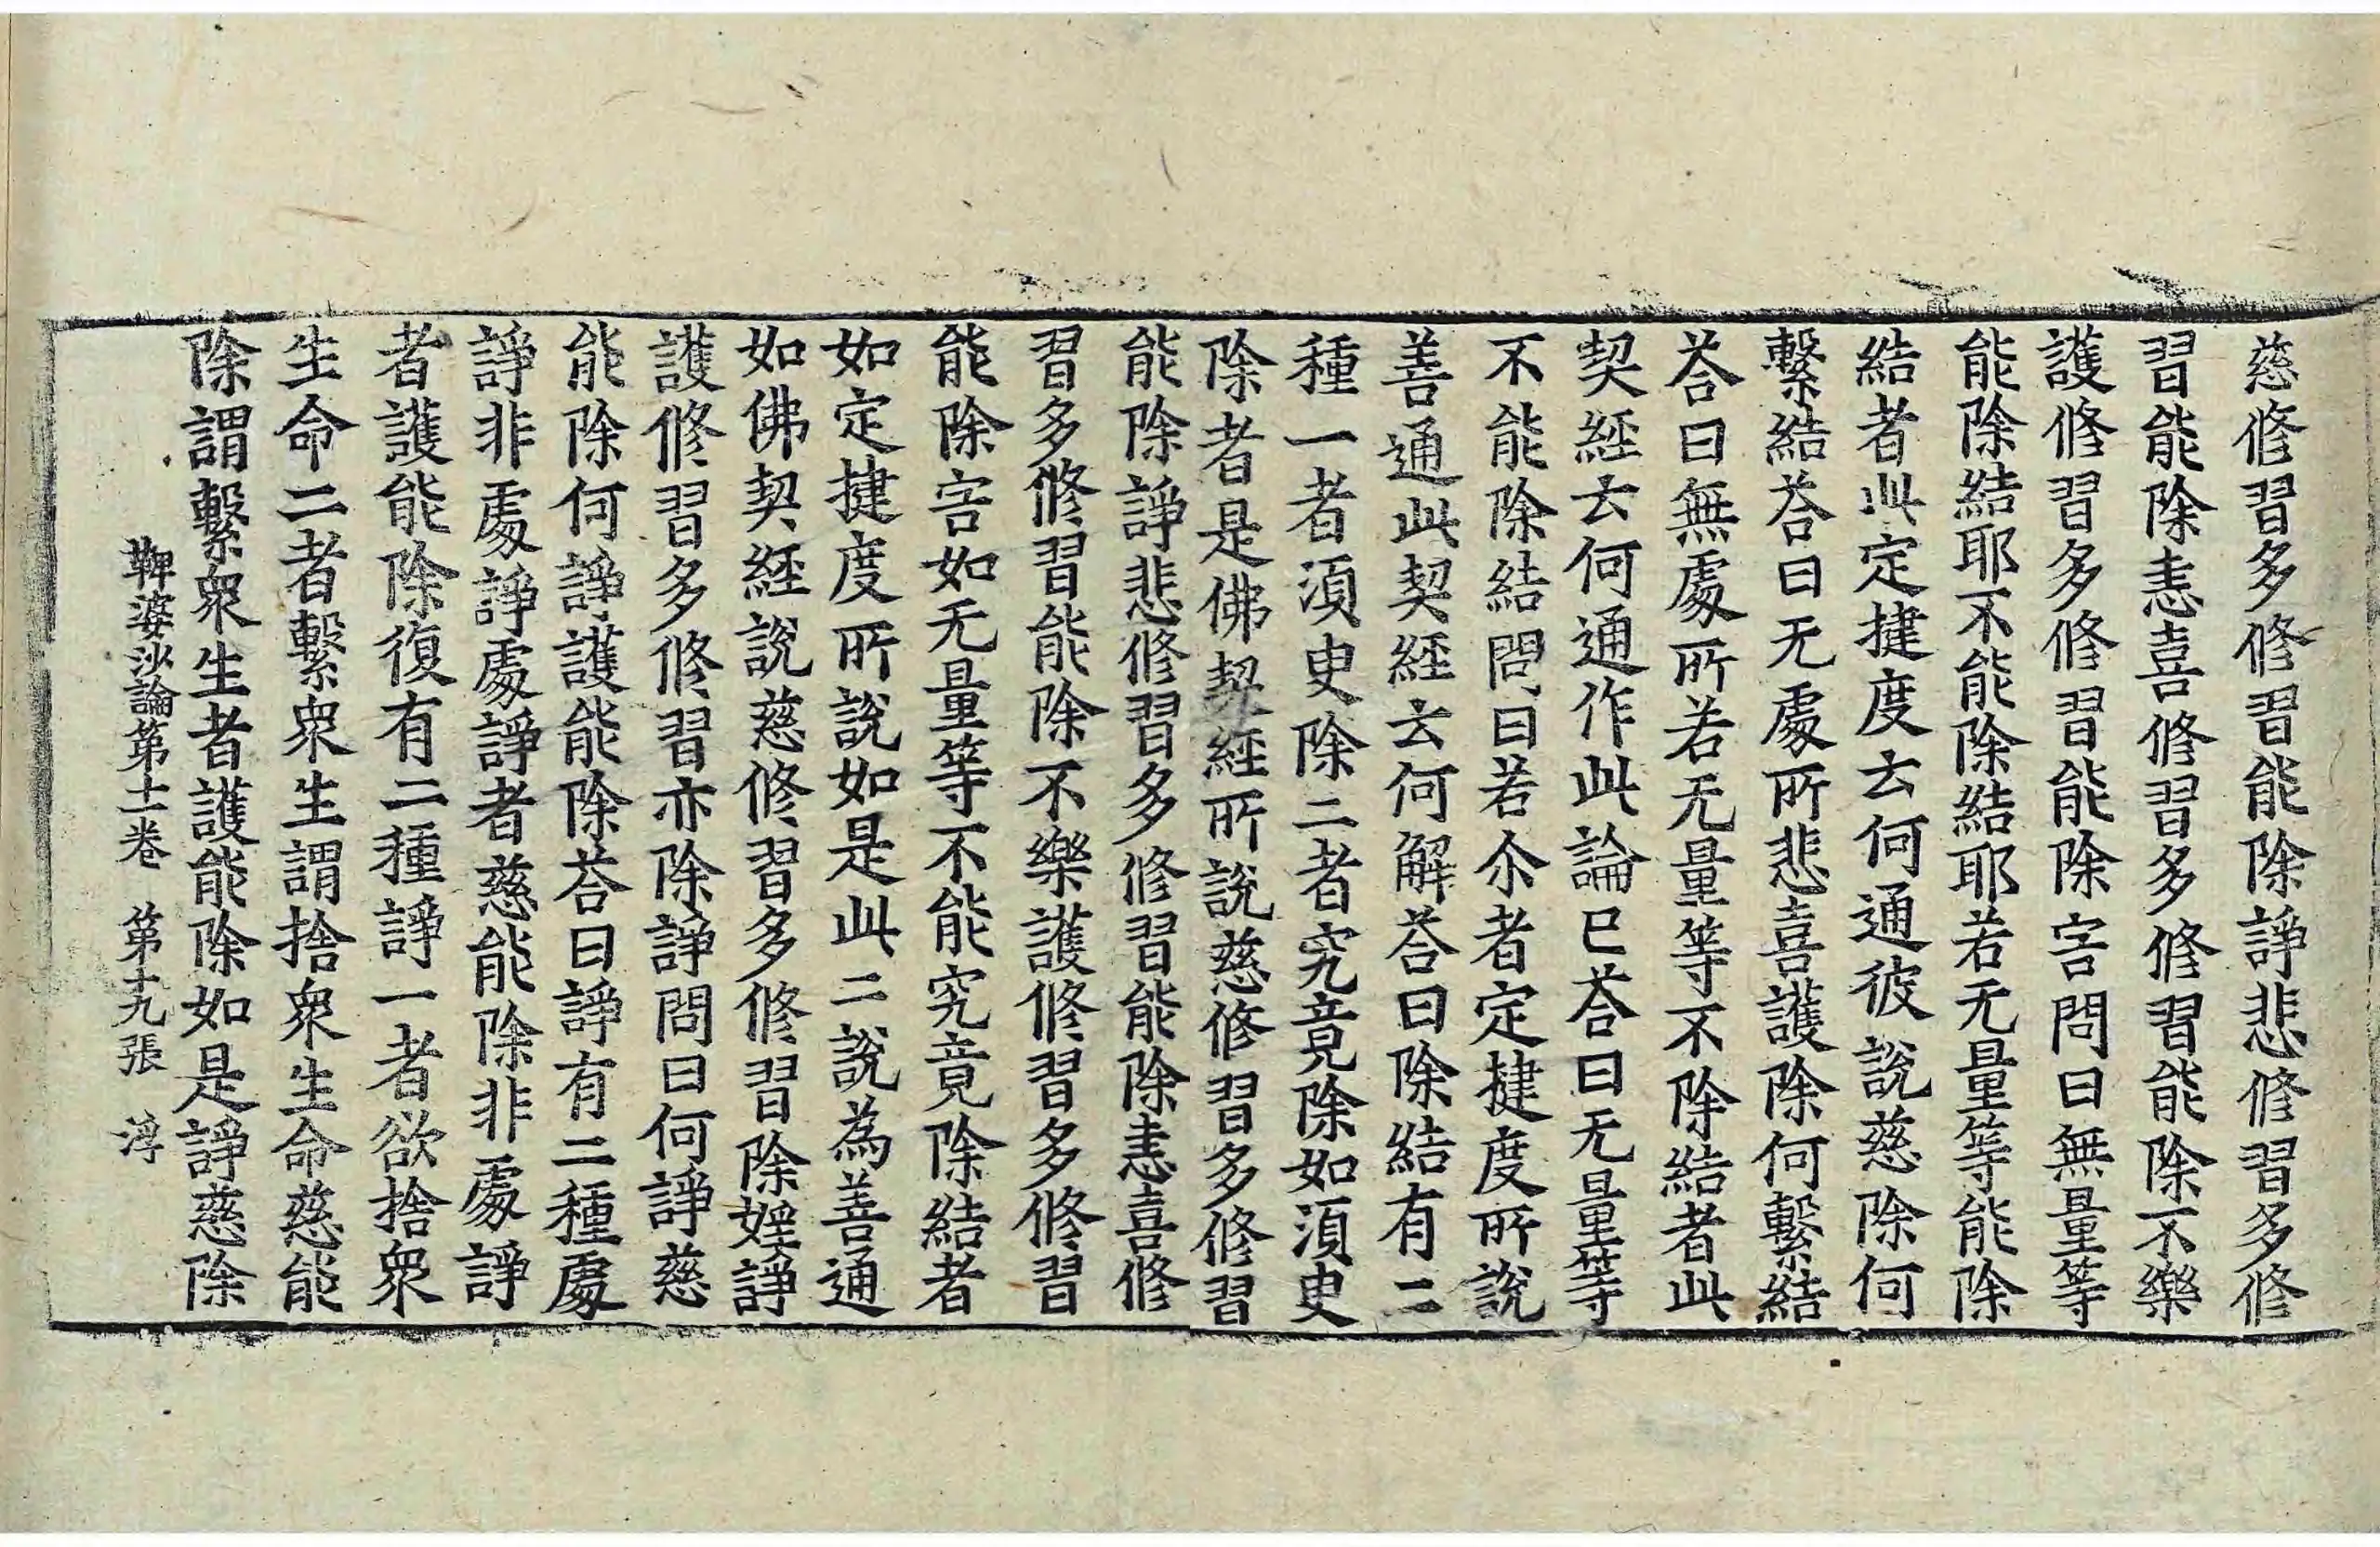 慈修習多修習能除諍悲修習多修
習能除恚喜修習多修習能除不樂
護修習多修習能除害問曰無量等
能除結耶不能除結耶若无量等能除
結者此定揵度云何通彼說慈除何
繫結荅曰无處所悲喜護除何繫結
荅曰無處所若无量等不除結者此
契經云何通作此論已荅曰无量等
不能除結問曰若尒者定揵度所說
善通此契經云何解荅曰除結有二
種一者湏臾除二者究竟除如湏臾
除者是佛契經所說慈修習多修習
能除諍悲修習多修習能除恚喜修
習多修習能除不樂護修習多修習
能除害如无量等不能究竟除結者
如定揵度所說如是此二說為善通
如佛契經說慈修習多修習除婬諍
護修習多修習亦除諍問曰何諍慈
能除何諍護能除荅曰諍有二種處
諍非處諍處諍者慈能除非處諍
者護能除復有二種諍一者欲捨衆
生命二者繫衆生謂捨衆生命慈能
除謂繫衆生者護能除如是諍慈除
鞞婆沙論第十二卷 第十九張 浮